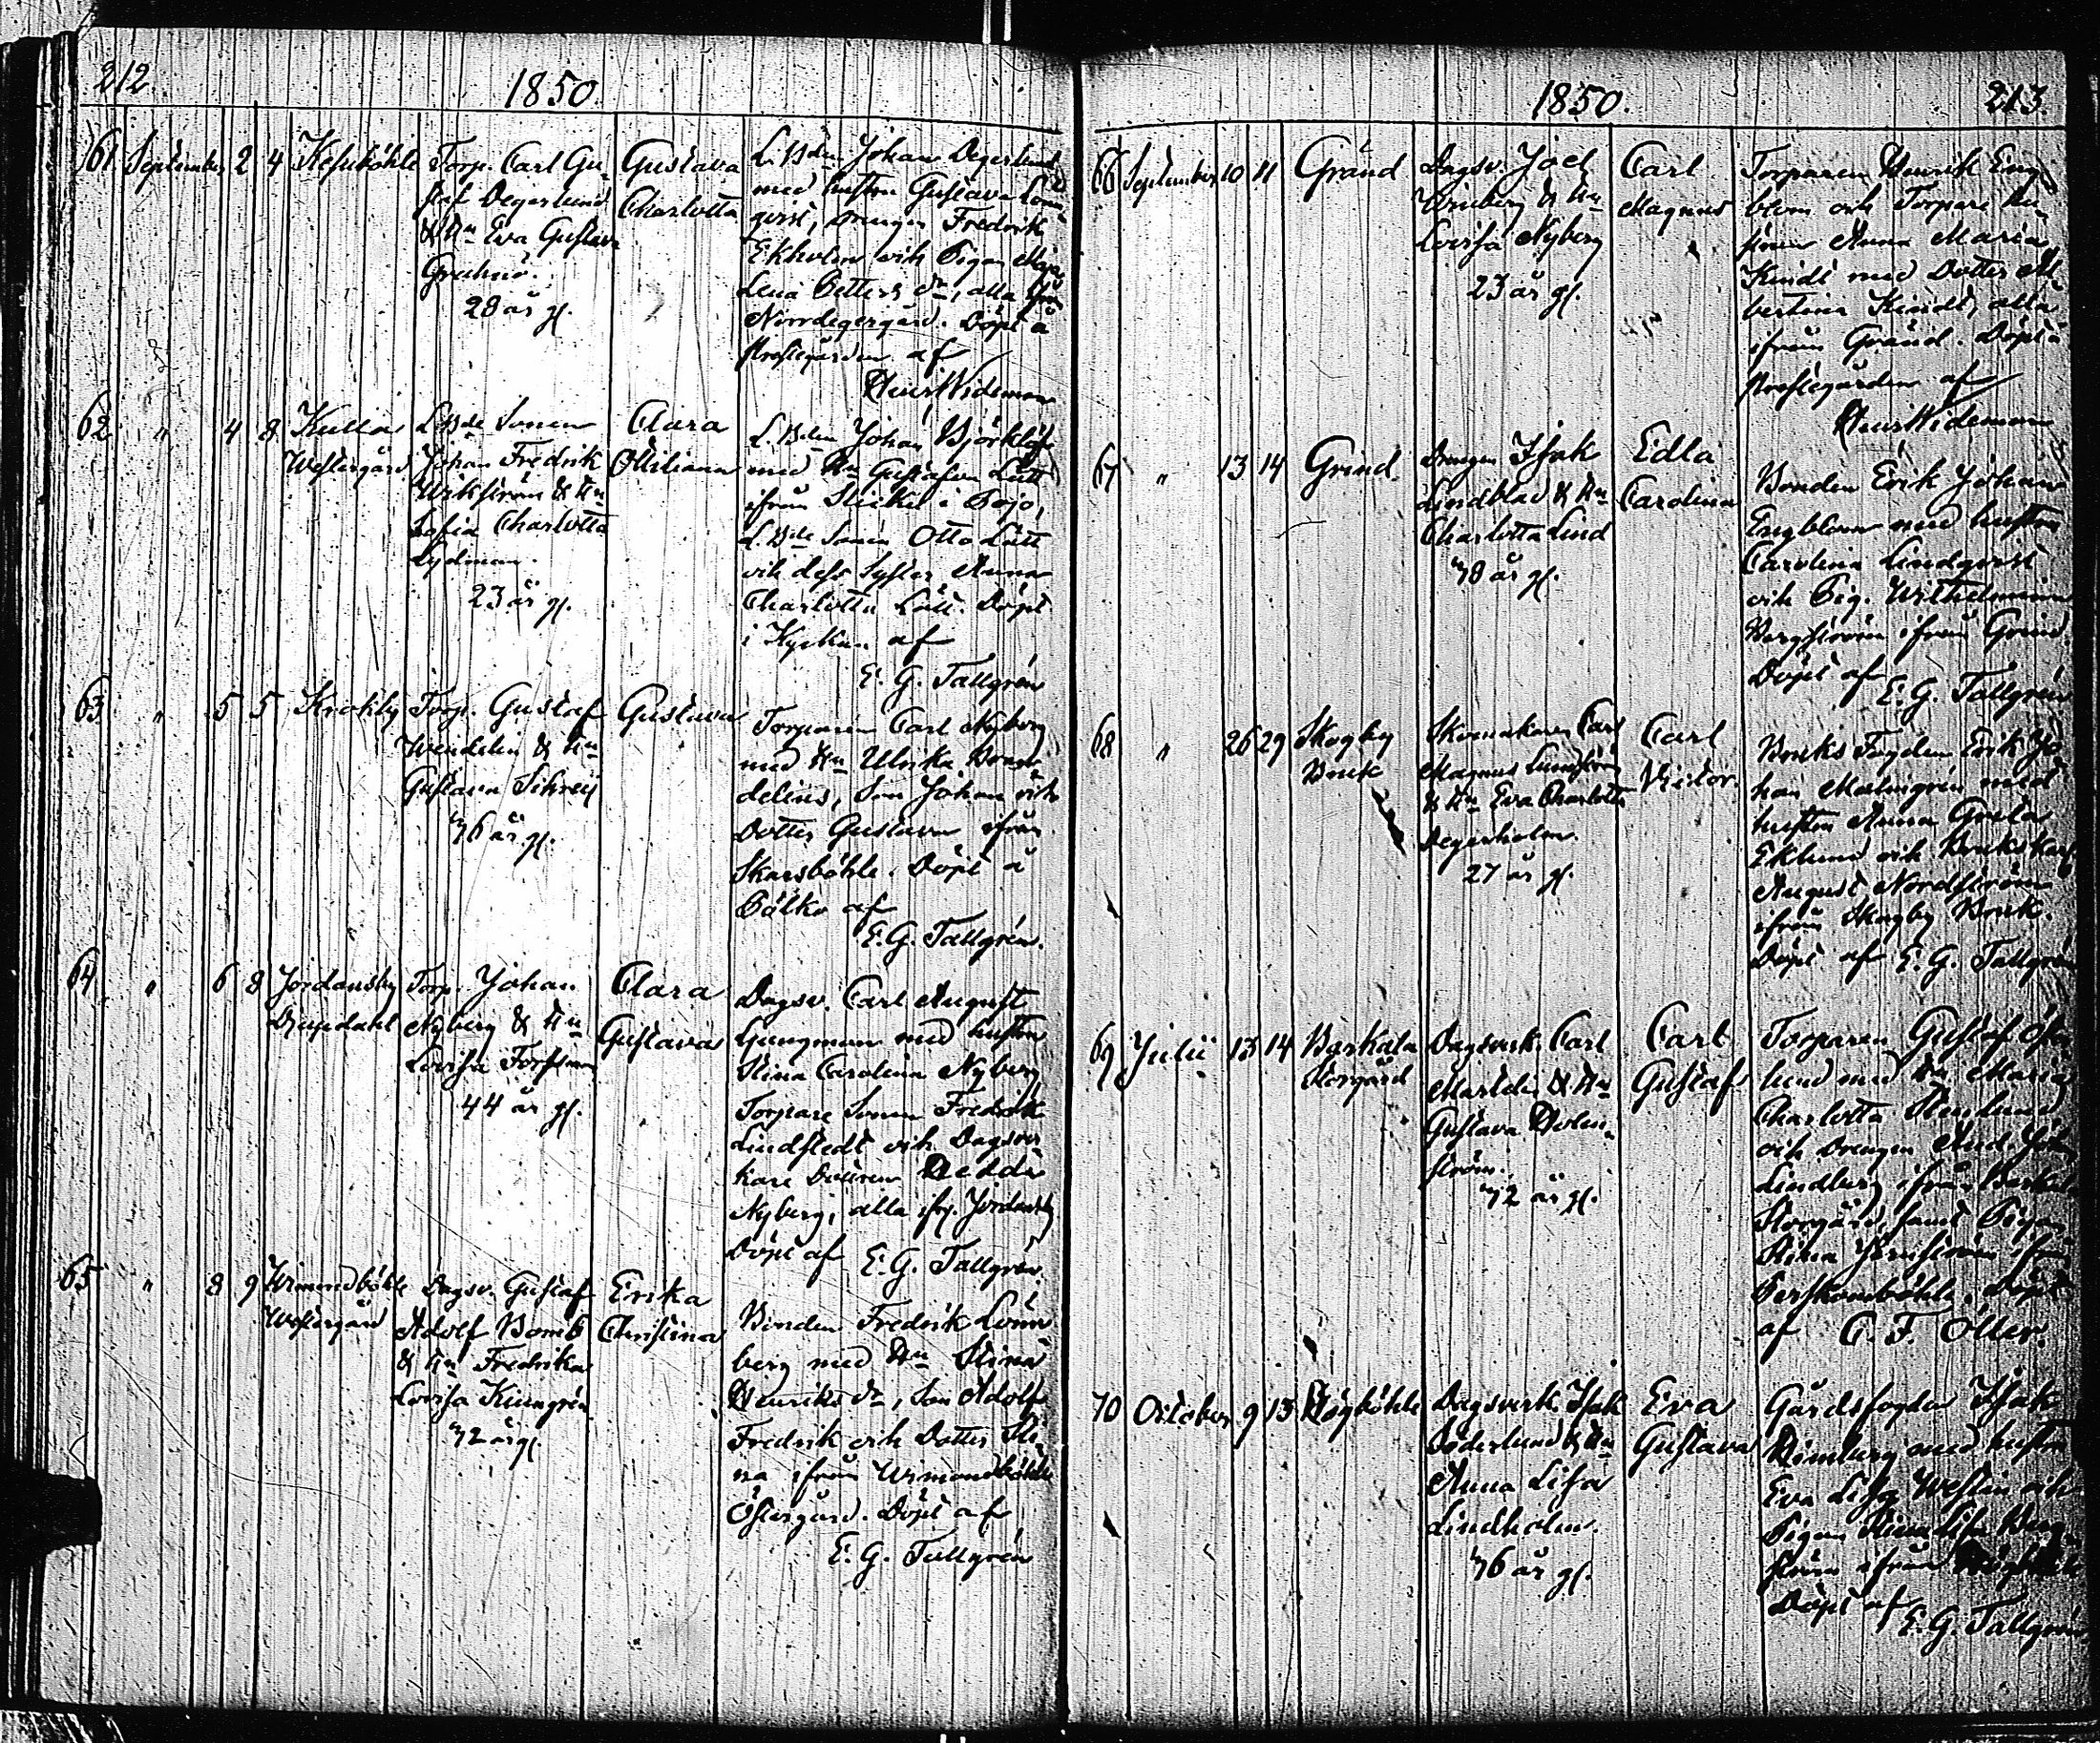 212
1850
61 September 2 4
Torp. Carl Gu-
staf Degerlund
& Hu Eva Gustava
28 år gl.
Gustava
Charlotta
L. Bden Johan Degerlund
med hustru Gustava Lönn-
qvist, drängen Fredrik
Ekholm och Pigan Maja
Lena Petters dr, alla ifrån
Norrdegergård. Döpt å
Prostegården af
Henr Wideman
62 " 4 8 Kulla
Westergård
L. Bde Sonen
Johan Fredrik
Wikström & Hu
Sofia Charlotta
Lydman.
23 år gl.
Clara
Ottiliana
L. Bden Johan Björklöf
med Hu Gustafva Lått
ifrån i Pojo,
L. Bde Sonen Otto Lått
och dess Syster Anna
Charlotta Lått. Döpt
i Kyrkan af
E. G. Tallgrén
63 " 5 5 Krokby
Torp. Gustaf
Wendelin & Hu
Gustava
36 år gl.
Gustava
Torparen Carl Nyberg
med Hu Ulrika
Son Johan och
Dotter Gustava ifrån
Skarsböhle. Döpt å
Pålko af
E. G. Tallgrén.
64 " 6 8 Jordansby
Djupdahl
Torp. Johan
Nyberg & Hu
Lovisa Forsman
44 år gl.
Clara
Gustava
Dagsv. Carl August
Ljungman med hustru
Stina Carolina Nyberg
Torpare Sonen Fredrik
Lindstedt och Dagsver
kare Dottren Hedda
Nyberg, alla ifrn Jordansby
Döpt af E. G. Tallgrén.
65 " 8 9 Wimondböhle
Westergård
Dagsv. Gustaf
Adolf
& Hu Fredrika
Lovisa
32 år gl.
Erika
Christina
Bonden Fredrik Lönn
berg med Hu Stina
Henriks dr, Son Adolf
Fredrik och Dotter Sti-
na ifrån Wimondböhle
Östergård. Döpt af
E. G. Tallgrén
1850.
213
66 September 10 11 Gränd
Dagsv. Joel
Winberg & Hu
Lovisa Nyberg
23 år gl.
Carl
Magnus
Torparen Henrik Eng-
blom och Torpare hu-
strun Anna Maria
med Dotter Al
bertina alla
ifrån Gränd. Döpt å
Prostegården af
Henr Wideman
67 " 13 14 Grind
Drängen Isak
Lindblad & Hu
Charlotta Lind
38 år gl.
Edla
Carolina
Bonden Erik Johan
Engblom med hustru
Carolina Lindqvist
och Pig. Wilhelmina
Bergström ifrån Grind
Döpt af E. G. Tallgrén
68 " 26 29 Skogby
Bruk
Skomakaren Carl
Magnus Lundström
& Hu Eva Charlotta
Degerholm.
27 år gl.
Carl
Victor.
Bruks Fogden Erik Jo
han Malmgrén med
hustru Anna Greta
Eklund och Bruks Karl
August Nordström
ifrån Skogby Bruk.
Döpt af E. G. Tallgrén
69 Julii 13 14 Baskala
Storgård
Dagsverk. Carl
Martelin & Hu
Gustava Holm-
ström.
32 år gl.
Carl
Gustaf
Torparen Gustaf Öster
lund med Hu Maria
Charlotta Stenlund
och Drengen And. Joh.
Lindberg ifrån Baskala
Storgård, samt Pigan
Stina
Döpt
af C. F. Öller.
70 October 9 13 Högböhle
Dagsverk. Isak
Söderlund & Hu
Anna Lisa
Lindholm.
36 år gl.
Eva
Gustava
Gårdsfogden Isak
med hustru
Eva Lisa Westin och
Pigan Stina Lisa Berg
ström ifrån Högböhle
Döpt af
E. G. Tallgrén